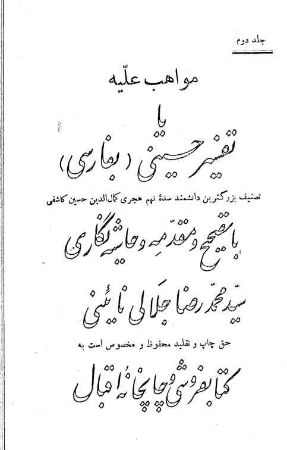 جلد دوم
مواهب علّیه
یا
تفسیر حسینی (بفارسی)
تصنیف بزرگترین دانشمند سدهٔ نهم هجری کمال‌الدین حسین کاشفی
با تصحیح و مقدمه و حاشیه نگاری
سید محمد رضا جلالی نائینی
حق چاپ و تقلید محفوظ و مخصوص است به
کتابفروشی و چاپخانه اقبال